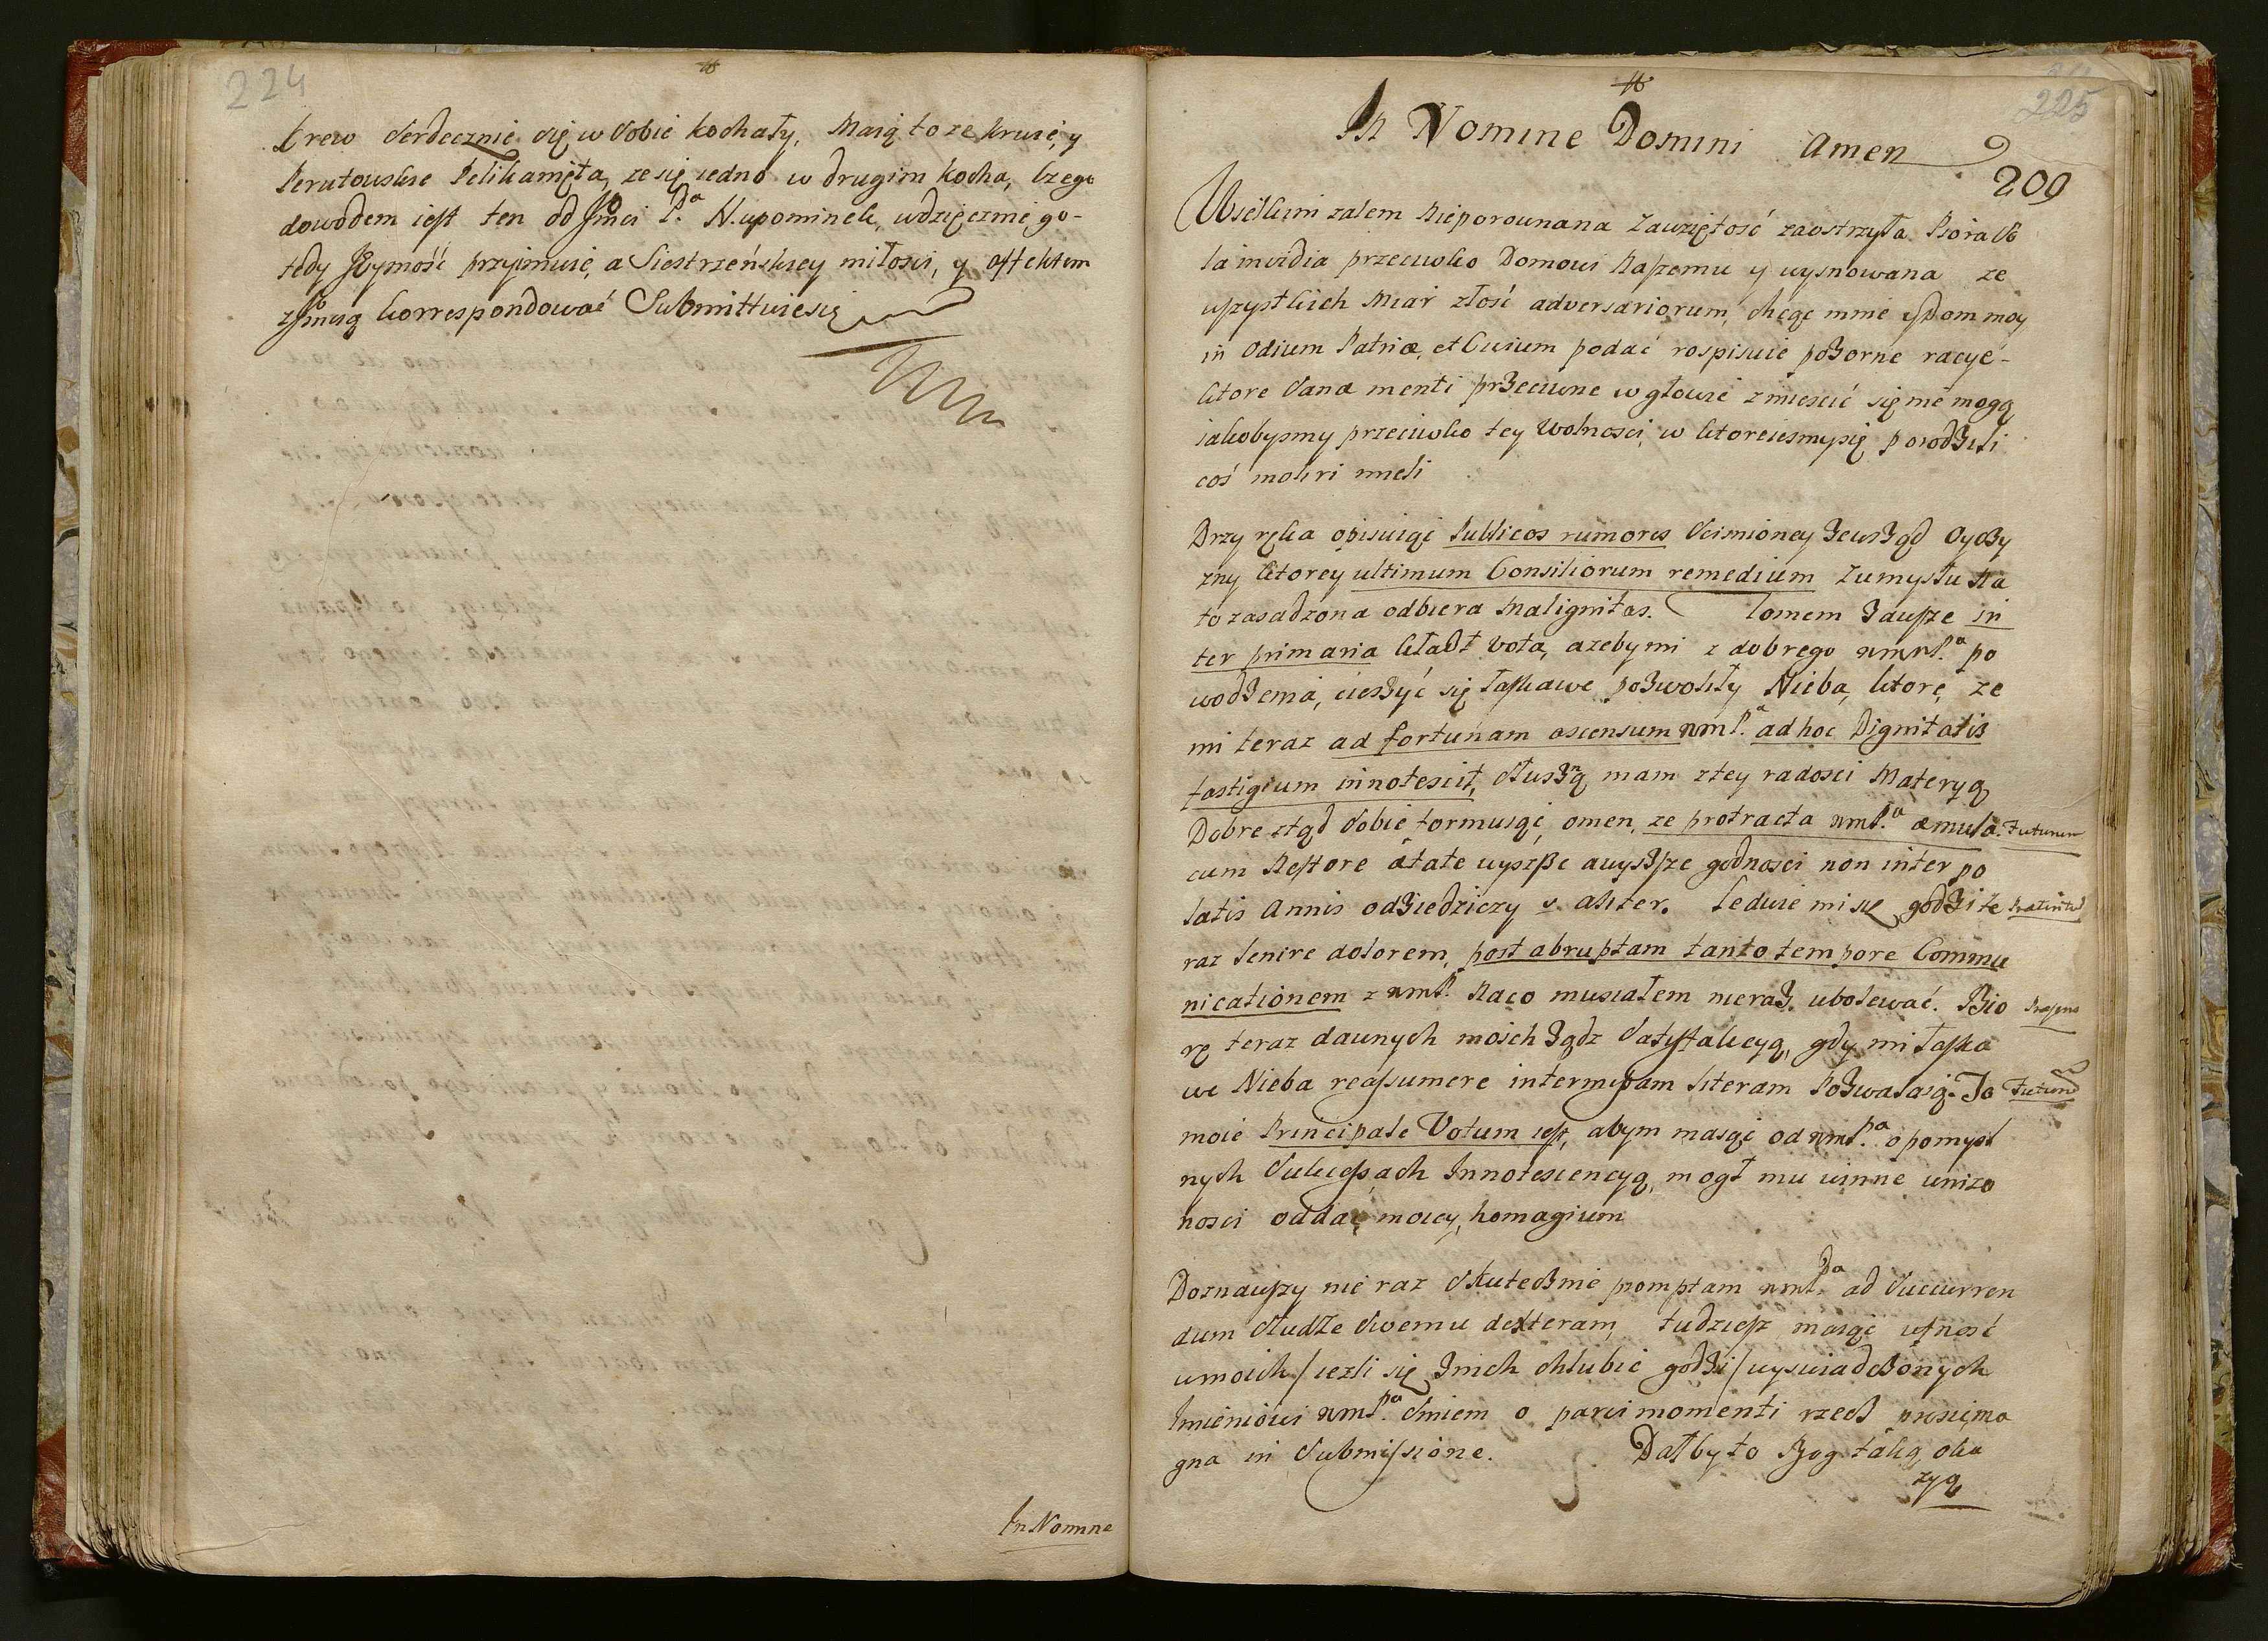 224
krew serdecznie się w sobie kochały, Maią to ze krwie, y
Perutowskie Pelikanięta, ze się iedno w drugim kocha, Czego
dowodem iest ten od Jmci P.a N. upominek, wdzięcznie go-
tedy Jeymość przyimuie, a Siestrzeńskiey miłosci, y affektem
z Jmcią korrespondować Submittuie się
In Nomne
225
In Nomine Domini Amen
209
Wielkim zalem Nieporownana Zawziętość zaostrzyła Piora
ta invidia przeciwko Domowi Naszemu y wysnowana ze
wszystkich Miar złość adversariorum, chcąc mnie y Dom moy
in Odium Patriæ, et Civium podać rospisuie pozorne racye-
ktore Sanæ menti przeciwne w głowie zmiescić się nie mogą
iakobysmy przeciwko tey Wolnosci, w ktoreiesmysię porodzili
coś moliri mieli
Drzy ręka opisuiąc Publicos rumores Scisnioney zewsząd Oyczy
zny ktorey ultimum Consiliorum remedium Zumysłu Na
to zasadzona odbiera Malignitas. lomem zawsze in
ter primaria kładł vota, azeby mi z dobrego wmmP.a po
wodzenia, cieszyć się łaskawe pozwoliły Nieba, ktore, ze
mi teraz ad fortunam ascensum wmP.a ad hoc Dignitatis
fastigium innotescit, słuszną mam ztey radosci Materyą
Dobre ztąd sobie formuiąc omen, ze protracta wmP.a æmula. Futurum
cum Nestore ætate wyszsze a wyszsze godnosci non inter po
latis Annis odziedziczy v. aliter. Ledwie mi się godzi te
raz lenire dolorem, post abruptam tanto tempore Commu
nicationem z wmP. Naco musiałem nieraz ubolewać. Bio
rę teraz dawnych moich ządz Satysfakcyą, gdy mi łaska
we Nieba reassumere intermissam literam Pozwalaią. To
moie Principale Votum iest, abym maiąc od wmP.a o pomysl
nych Sukcessach Innotescencyą, mogł mu winne unizo
nosci oddać moiey, homagium
Doznawszy nie raz skutecznie promptam wmP.a ad Succurren
dum słudze swemu dexteram, tudziesz maiąc ufnosć
w moich / iezli się z nich chlubić godzi / wyswiadczonych
Imieniowi wmP.a smiem o parvi momenti rzecz prosić, ma
gna in Submissione. Dałby to Bog taką oka
zyą